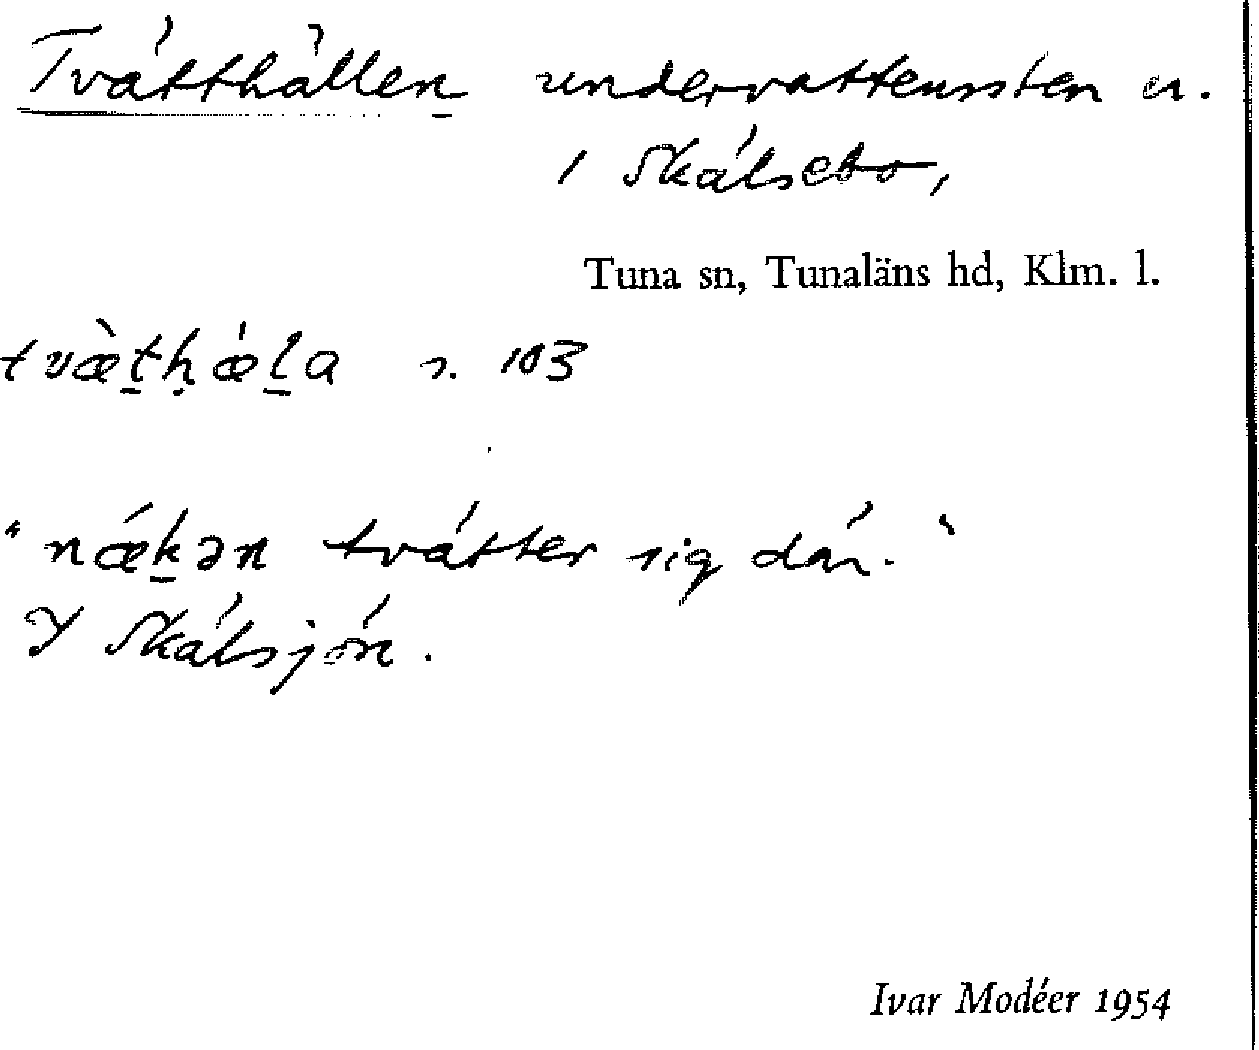 Tvätthällen undervattenssten u.
i Skälsebo,
Tuna sn, Tunaläns hd, Klm. l.
tvæ̀ṯḥǽḻa s. 103
"nǽḵən tvätter sig där."
I Skälsjön.
Ivar Modéer 1954